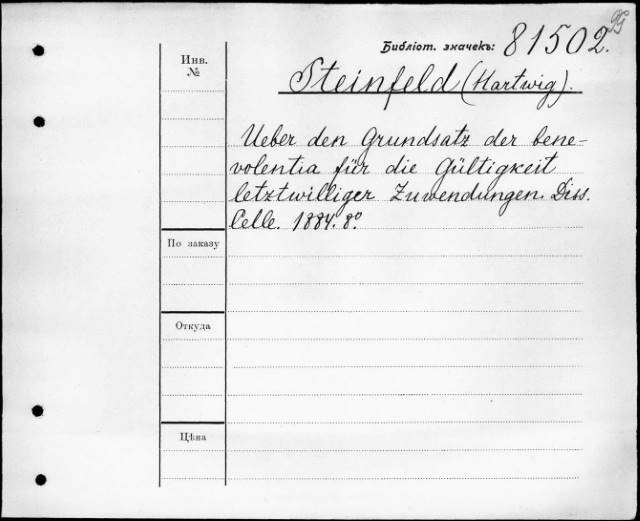 Библіот. значекъ: 81502.
Инв.
№
Steinfeld (Hartwig).
Ueber den Grundsatz der bene-
volentia für die Gültigkeit
letztwilliger Zuwendungen. Diss.
Celle. 1884. 8.º
По заказу
Откуда
Цѣна